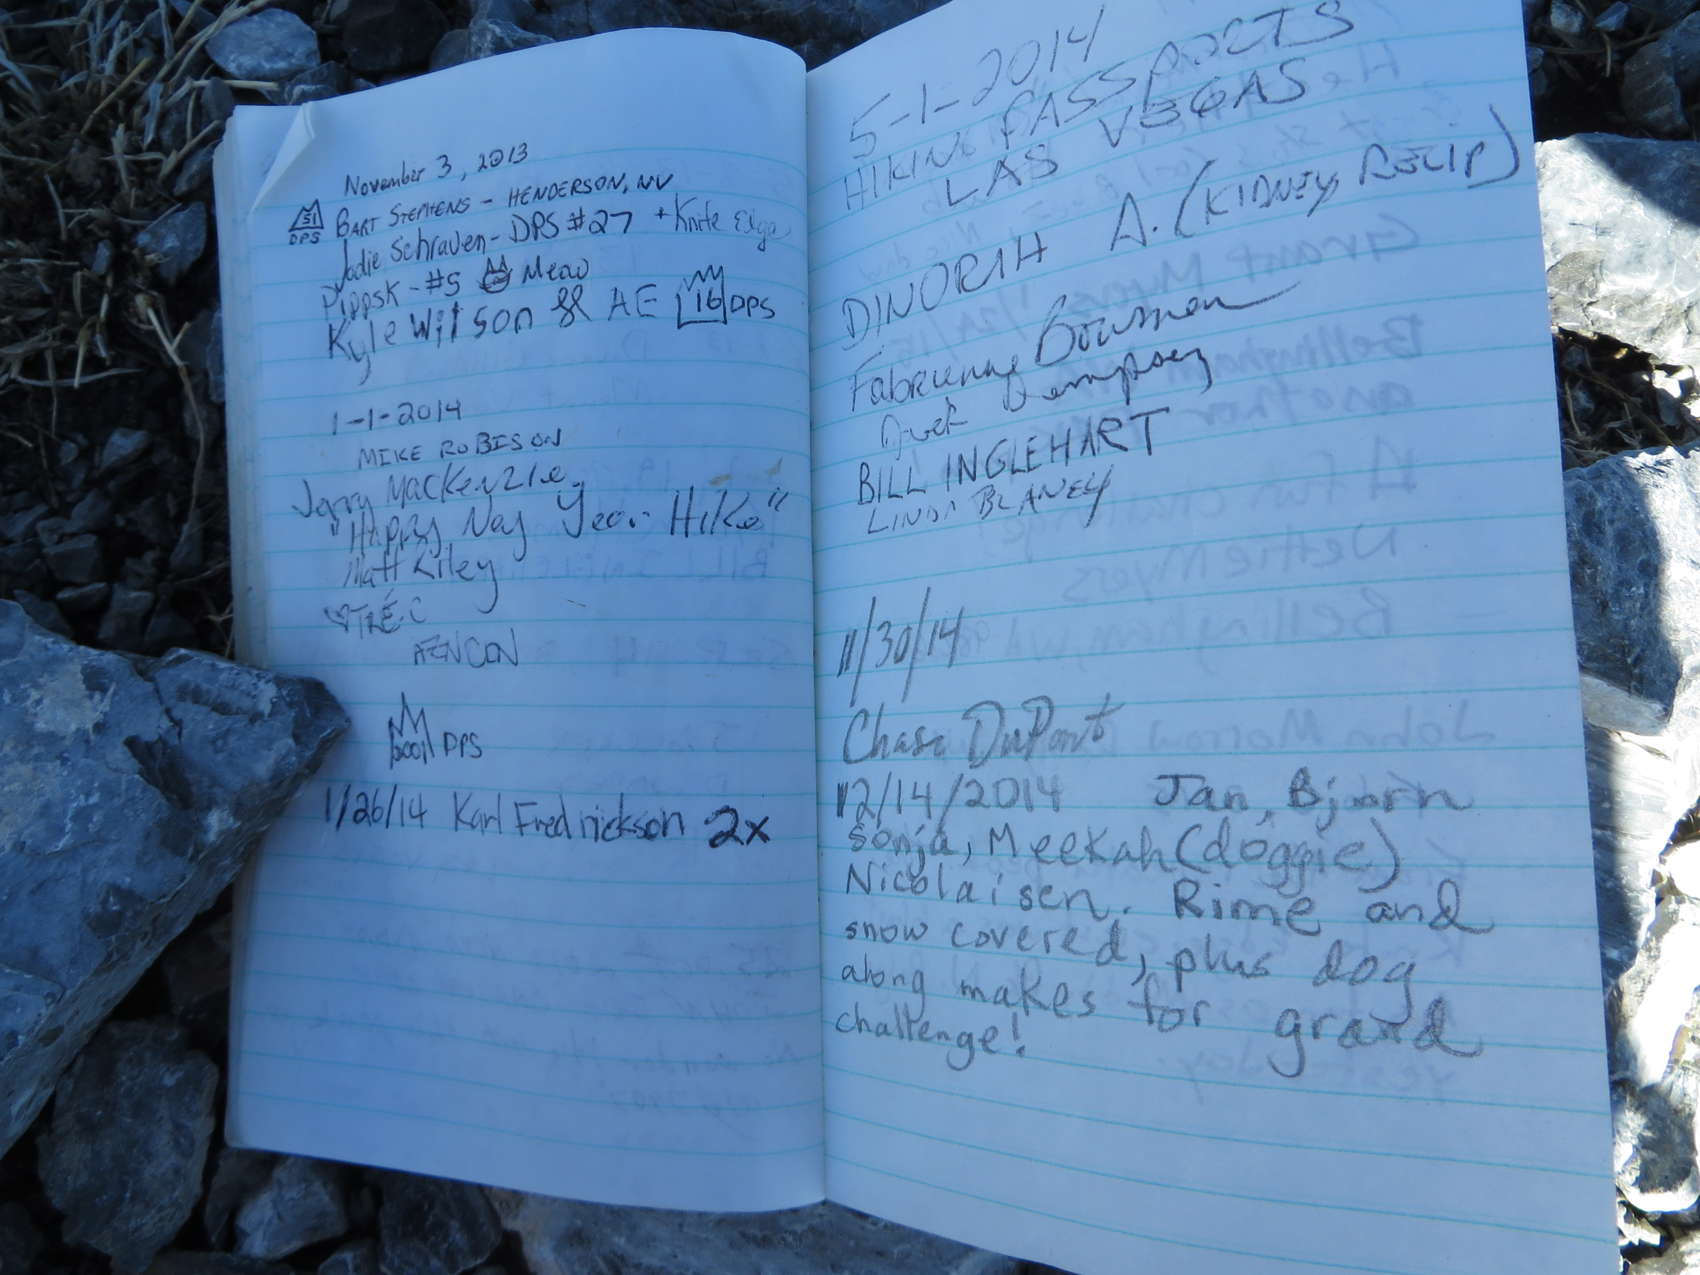 November 3, 2013
51 DPS BART STEPHENS - HENDERSON, NV
Jodie Schraven - DPS #27 + Knife Edge
PIPPSK - #5 Meow
Kyle Wilson && AE 16 DPS
1-1-2014
MIKE ROBISON
Jerry MacKenzie
"Happy Ney Year Hike"
Matt Riley
TRE.C
DPS
1/26/14 Karl Fredrickson 2x
5-1-2014
HIKING PASSPORTS
LAS VEGAS
DINORAH A. (KIDNEY RECIP)
Fabrienne Bouwman
Dempsey
BILL INGLEHART
LINDA BLANEY
11/30/14
Chase DuPont
12/14/2014 Jan, Bjorn
Sonja, Meekah (doggie)
Nicolaisen. Rime and
snow covered, plus dog
along makes for grand
challenge!